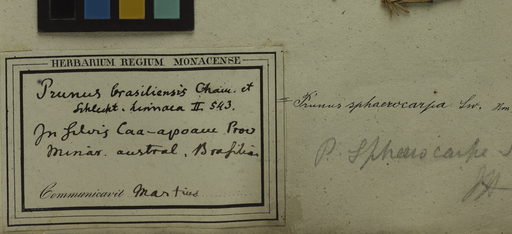 HERBARIUM REGIUM MONACENSE
Prunus brasiliensis Cham. et
Schlecht. Linnaea II. 543.
In Silvis Caa-apoam Prov
Minar. austral. Brasilia
Communicavit Martius
= Prunus sphaerocarpa Sw.
P. Sphaerocarpa